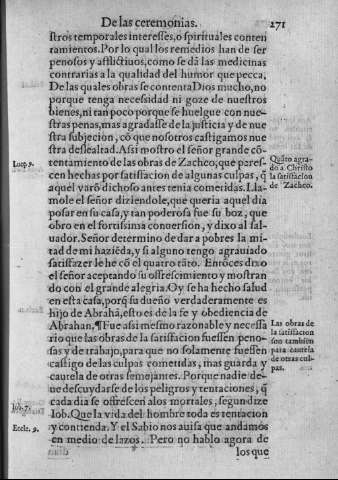 De las ceremonias.
271
stros temporales interesses, o spirituales conten
tamientos. Por lo qual los remedios han de ser
penosos y aflictiuos, como se dā las medicinas
contrarias a la qualidad del humor que pecca,
De las quales obras se contenta Dios mucho, no
porque tenga necessidad ni goze de nuestros
bienes, ni tan poco porque se huelgue con nue-
stras penas, mas agradasse de la justicia y de nue
stra subjecion, cō que nosotros castigamos nue
stra deslealtad. Assi mostro el señor grande cō-
tentamiento de las obras de Zacheo, que pares-
cen hechas por satisfacion de algunas culpas, q̄
aquel varō dichoso antes tenia cometidas. Lla-
mole el señor diziendole, que queria aquel dia
posar en su casa, y tan poderosa fue su boz, que
obro en el fortissima conuersion, y dixo al sal-
uador. Señor determino de dar a pobres la mi-
tad de mi haziēda, y si alguno tengo agrauiado
satisfazer le he cō el quatro tāto. Entōces dixo
el señor aceptando su offrescimiento y mostran
do con el grande alegria. Oy se ha hecho salud
en esta casa, porq̄ su dueño verdaderamente es
hijo de Abrahā, esto es de la fe y obediencia de
Abrahan, ¶ Fue assi mesmo razonable y necessa
rio que las obras de la satisfacion fuessen peno-
sas y de trabajo, para que no solamente fuessen
castigo de las culpas cometidas, mas guarda y
cautela de otras semejantes. Porque nadie de-
ue descuydarse de los peligros y tentaciones, q̄
cada dia se offrescen alos mortales, segun dize
Iob. Que la vida del hombre toda es tentacion
y contienda. Y el Sabio nos auisa que andamos
en medio de lazos. Pero no hablo agora de
los que
Luc. 9.
Iob. 7.
Eccle. 9.
Quāto agra-
do a Christo
la satisfacion
de Zacheo.
Las obras de
la satisfacion
son tambien
para cautela
de otras cul-
pas.